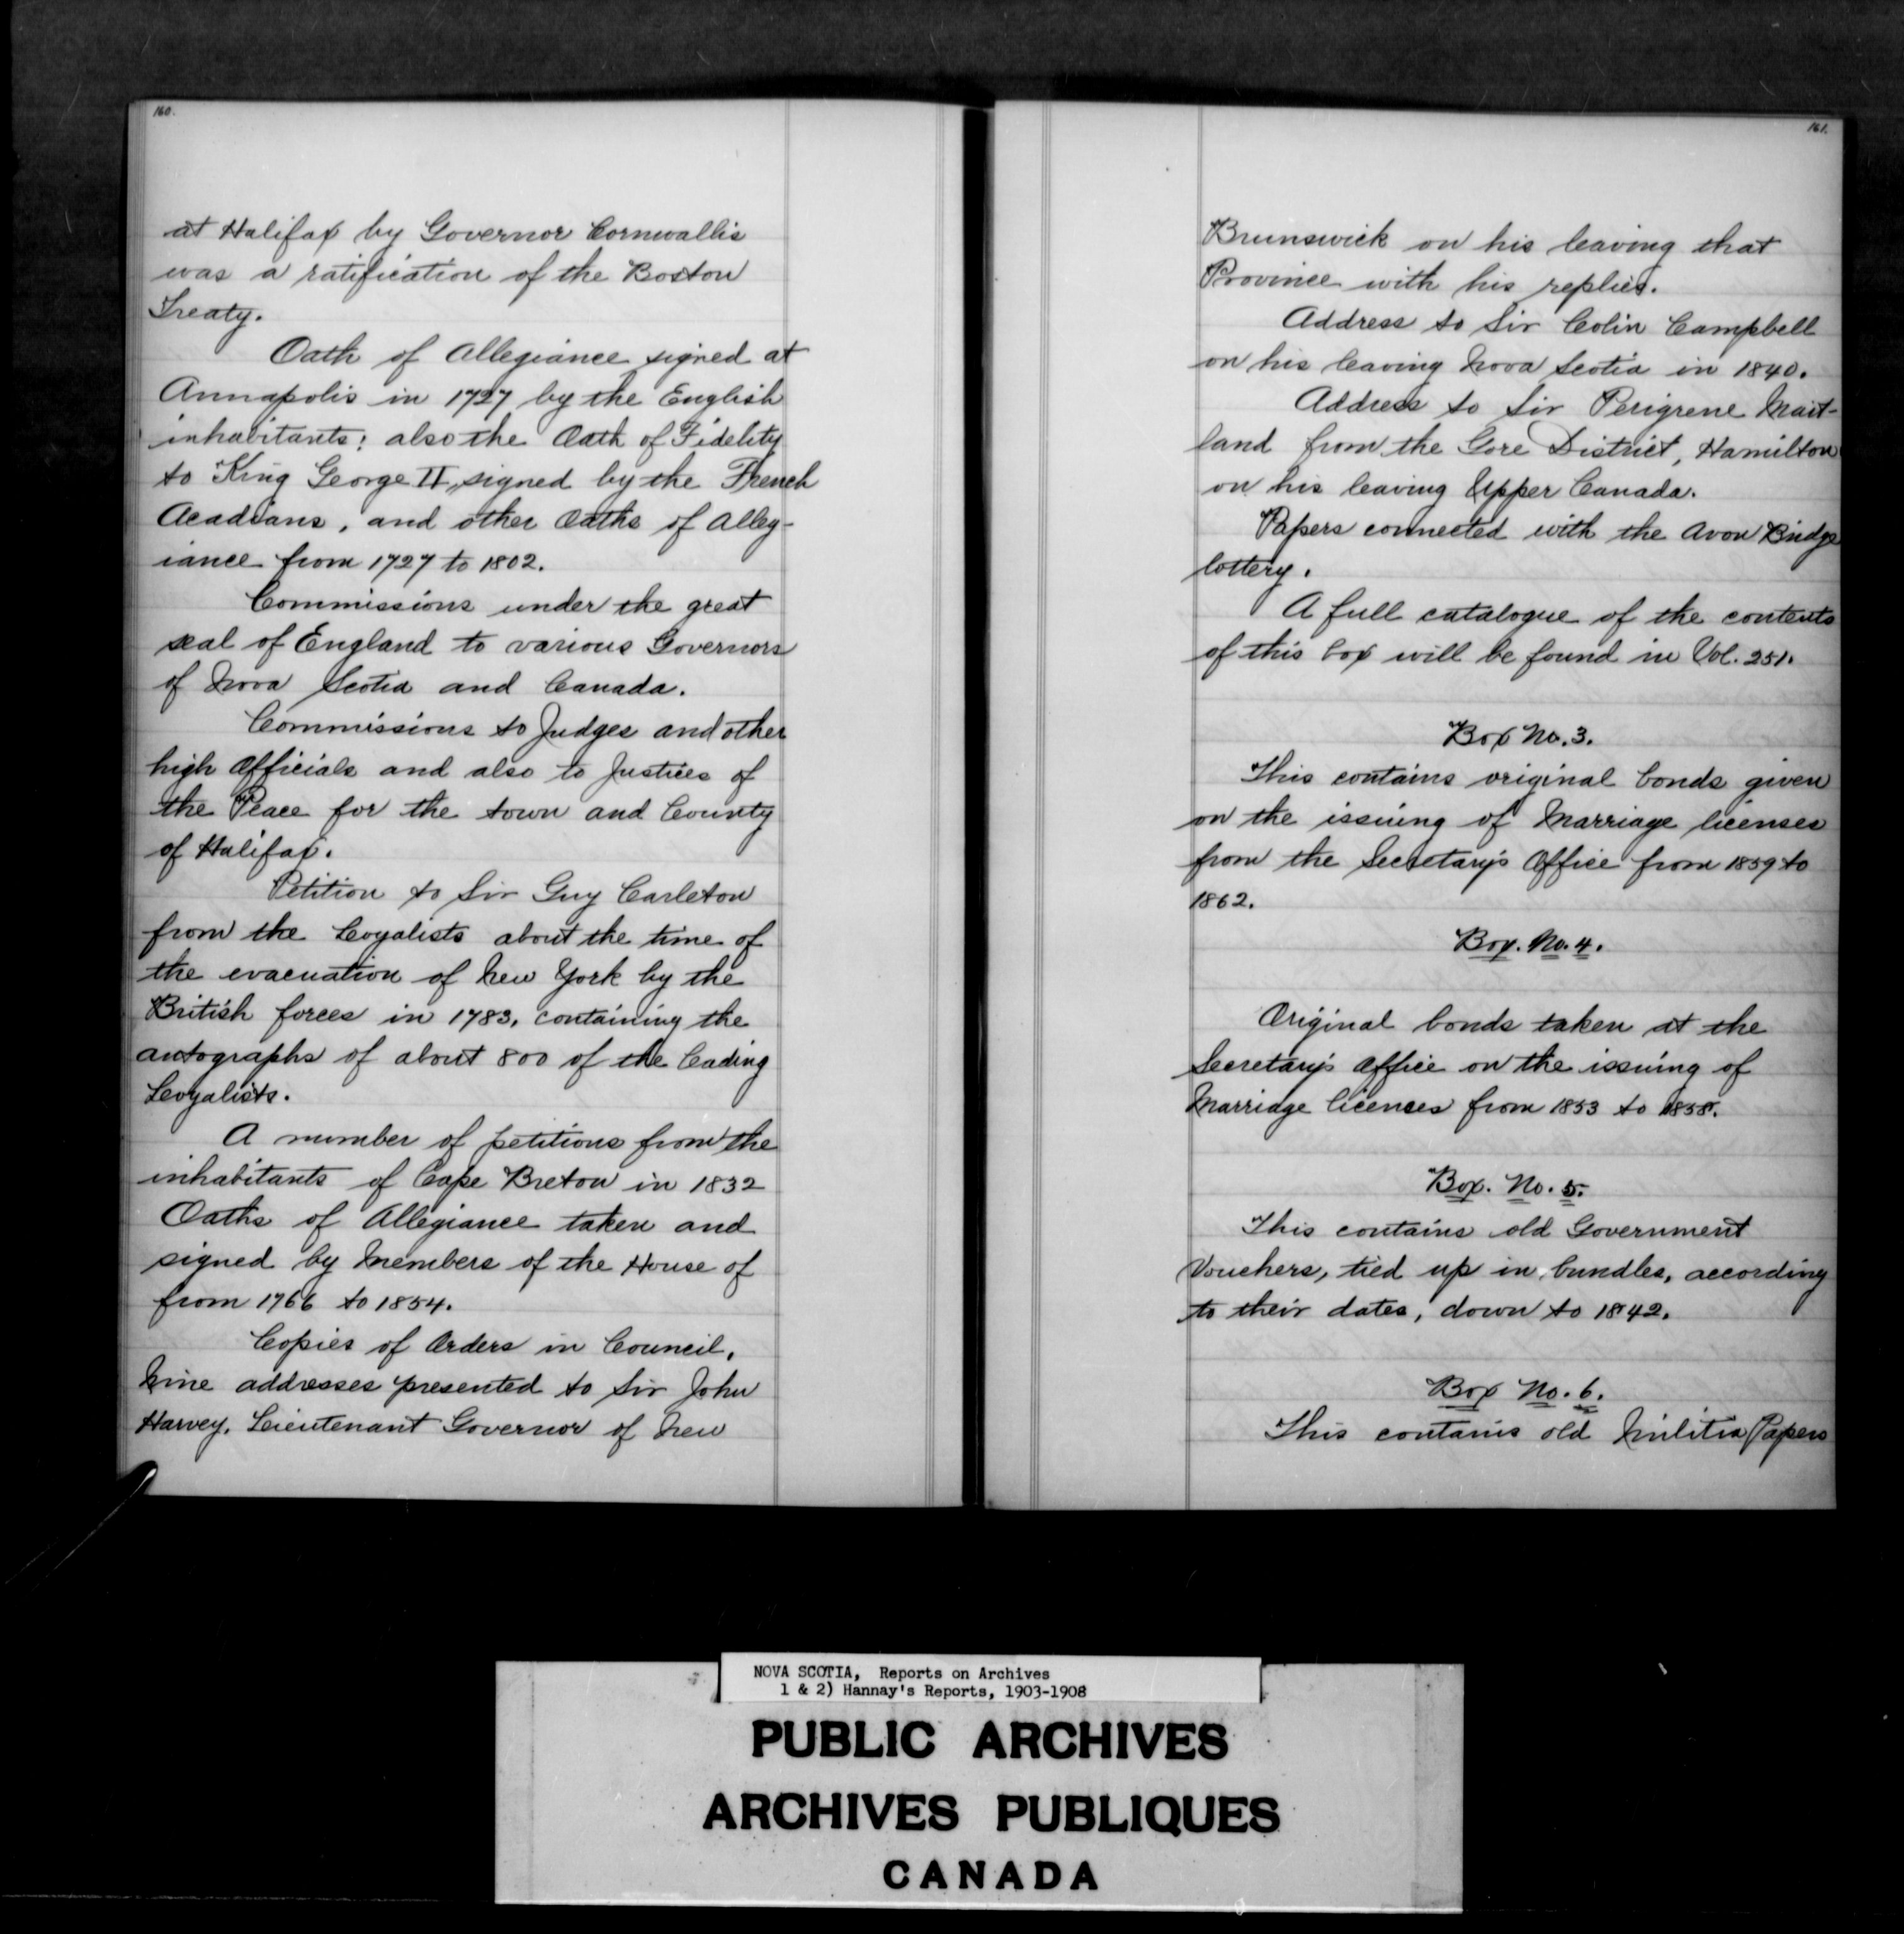 160.
at Halifax by Governor Cornwallis
was a ratification of the Boston
Treaty.
Oath of Allegiance signed at
Annapolis in 1727 by the English
inhabitants: also the Oath of Fidelity
to King George II, signed by the French
Acadians, and other Oaths of Alleg-
iance from 1727 to 1802.
Commissions under the great
seal of England to various Governors
of Nova Scotia and Canada.
Commissions to Judges and other
high Officials and also to Justices of
the Peace for the town and County
of Halifax.
Petition to Sir Guy Carleton
from the Loyalists about the time of
the evacuation of New York by the
British forces in 1783, containing the
autographs of about 800 of the leading
Loyalists.
A number of petitions from the
inhabitants of Cape Breton in 1832
Oaths of Allegiance taken and
signed by Members of the House of
from 1766 to 1854.
Copies of Orders in Council,
Nine addresses presented to Sir John
Harvey, Lieutenant Governor of New
161.
Brunswick on his leaving that
Province with his replies.
Address to Sir Colin Campbell
on his leaving Nova Scotia in 1840.
Address to Sir Perigrene Mait-
land from the Gore District, Hamilton
on his leaving Upper Canada.
Papers connected with the Avon Bridge
lottery.
A full catalogue of the contents
of this box will be found in Vol. 251.
Box No. 3.
This contains original bonds given
on the issuing of Marriage licenses
from the Secretary's Office from 1859 to
1862.
Box. No. 4.
Original bonds taken at the
Secretary's Office on the issuing of
Marriage licenses from 1853 to 1858.
Box. No. 5.
This contains old Government
Vouchers, tied up in bundles, according
to their dates, down to 1842.
Box No. 6.
This contains old Militia Papers
NOVA SCOTIA, Reports on Archives
1 & 2) Hannay's Reports, 1903-1908
PUBLIC ARCHIVES
ARCHIVES PUBLIQUES
CANADA